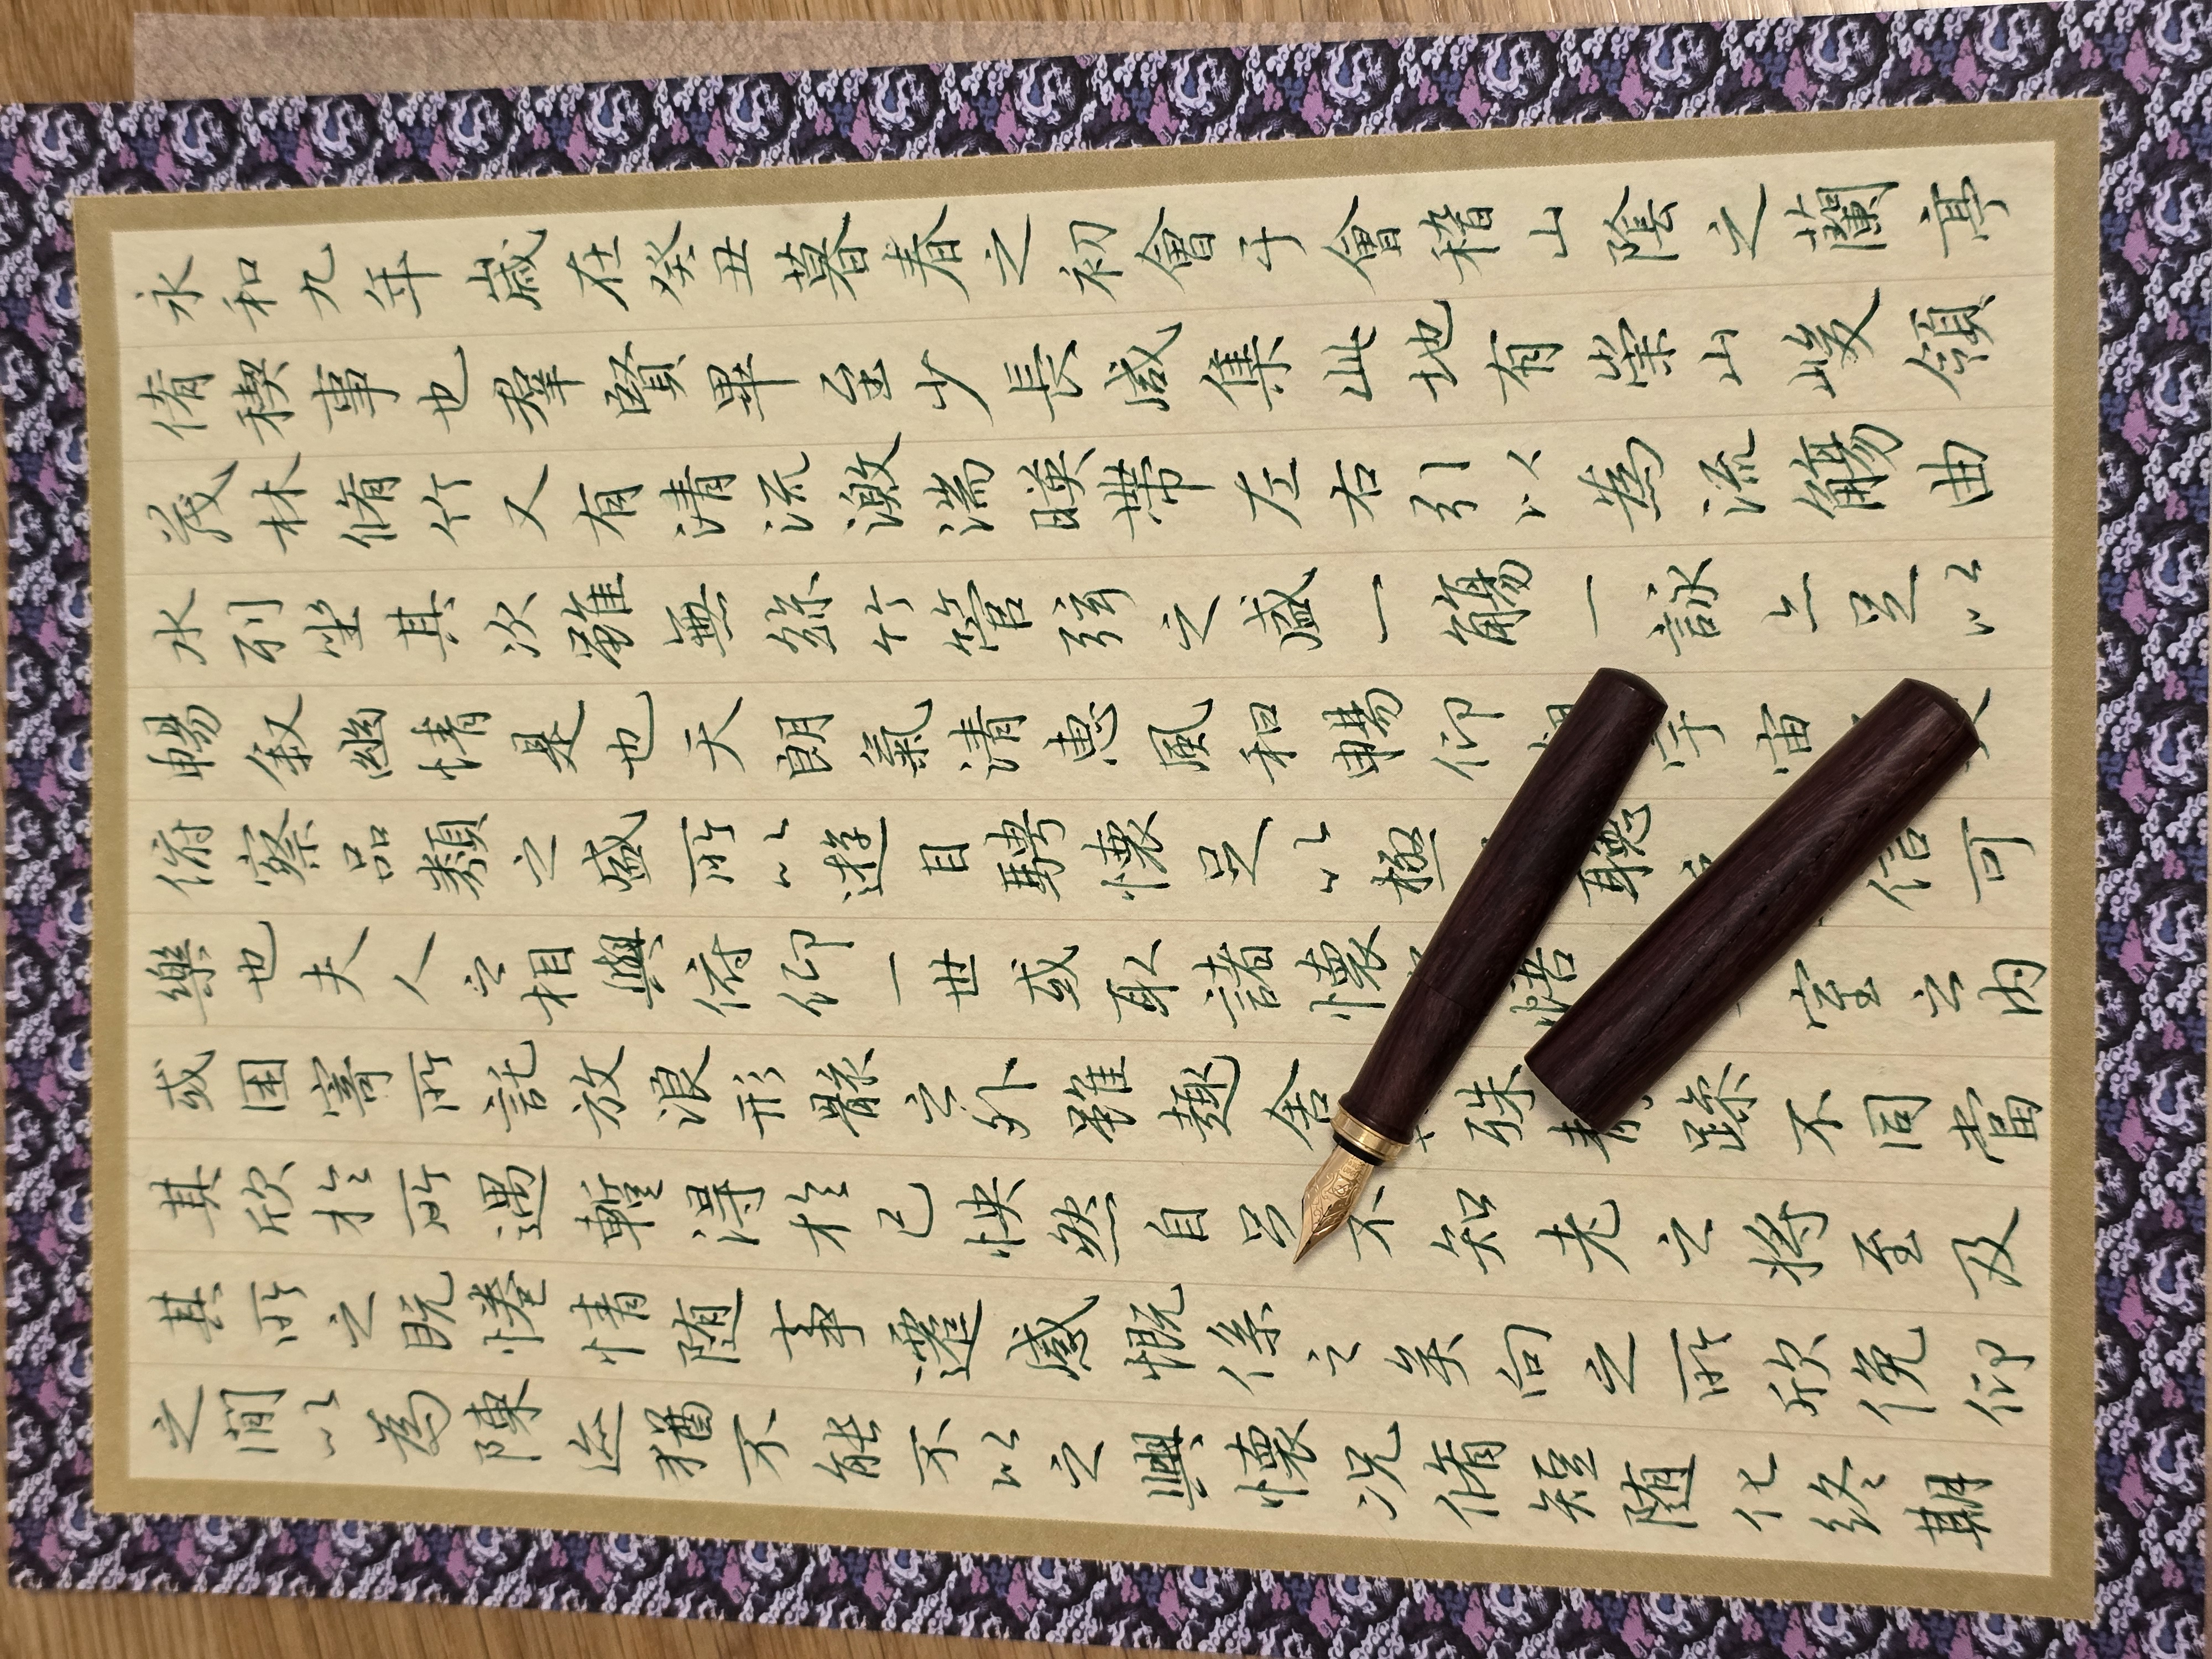 永和九年歲在癸丑暮春之初會于會稽山陰之蘭亭
脩禊事也羣賢畢至少長咸集此地有崇山峻領
茂林脩竹又有清流激湍暎帶左右引以為流觴曲
水列坐其次雖無絲竹管弦之盛一觴一詠亦足以
暢叙幽情是也天朗氣清惠風和暢仰宇宙
俯察品類之盛所以遊目騁懷足以極聽信可
樂也夫人之相與俯仰一世或取諸懷悟室之内
或因寄所託放浪形骸之外雖趣舍殊躁不同當
其欣於所遇暫得於己怏然自足不知老之將至及
其所之既惓情隨事遷感慨係之矣向之所欣俛仰
之閒以為陳迹猶不能不以之興懷况脩短隨化終期